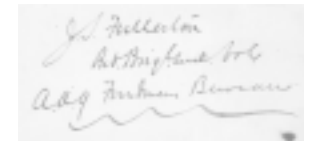 J.S. Fullerton
Bvt. Brig Genl Vols
A A G Freedmens Bureau